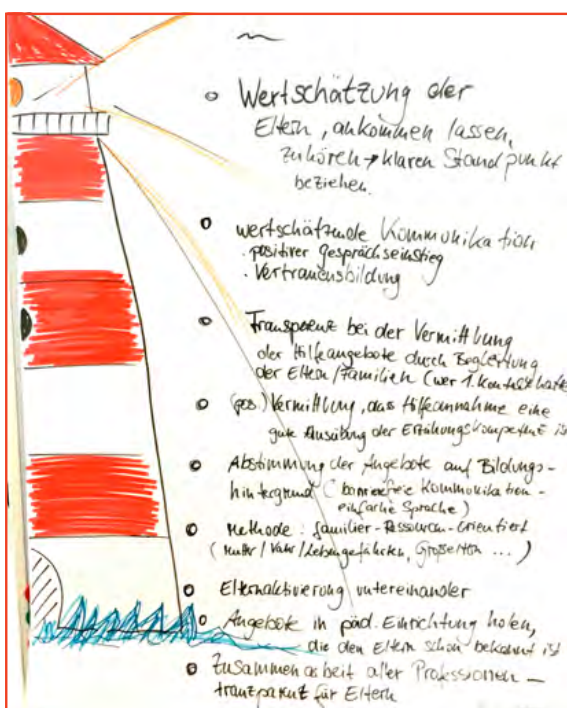 Wertschätzung der
Eltern, ankommen lassen,
zuhören → klaren Standpunkt
beziehen.
wertschätzende Kommunikation
· positiver gesprächseinstieg
· Vertrauensbildung
Transparenz bei der Vermittlung
der Hilfeangebote durch Begleitung
der Eltern/Familien (wer 1. Kontakt hatte
(pos.) Vermittlung, das Hilfeannahme eine
gute Ausübung der Erziehungskompetenz is
Abstimmung der Angebote auf Bildungs-
hintergrund (barrierefreie Kommunikation -
einfache Sprache)
Methode: familier-Ressourcen-orientiert
(Mutter/Vater/Lebengefährten, Großeltern ...)
Elternaktivierung untereinander
Angebote in päd. Einrichtung holen,
die den Eltern schon bekannt ist
Zusammenarbeit aller Professionen -
tranzparent für Eltern